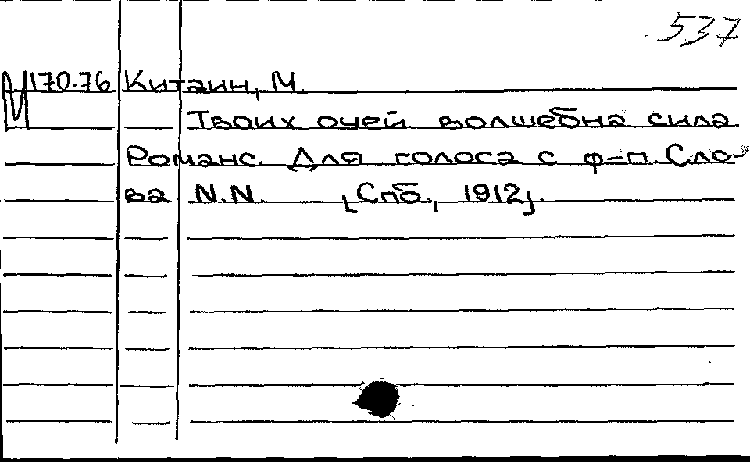 537
М170.76 Китаин, М.
Твоих очей волшебна сила
Романс. Для голоса с ф-п. Сло-
ва N.N. [Спб., 1912].